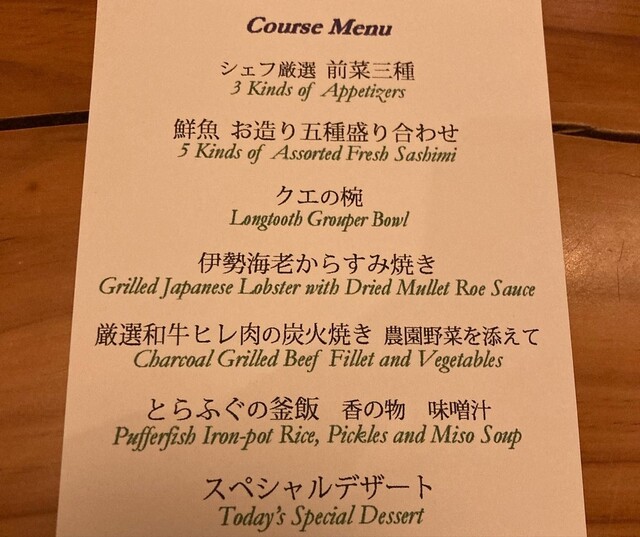 Course Menu
シェフ厳選 前菜三種
3 Kinds of Appetizers
鮮魚 お造り五種盛り合わせ
5 Kinds of Assorted Fresh Sashimi
クエの椀
Longtooth Grouper Bowl
伊勢海老からすみ焼き
Grilled Japanese Lobster with Dried Mullet Roe Sauce
厳選和牛ヒレ肉の炭火焼き 農園野菜を添えて
Charcoal Grilled Beef Fillet and Vegetables
とらふぐの釜飯 香の物 味噌汁
Pufferfish Iron-pot Rice, Pickles and Miso Soup
スペシャルデザート
Today's Special Dessert